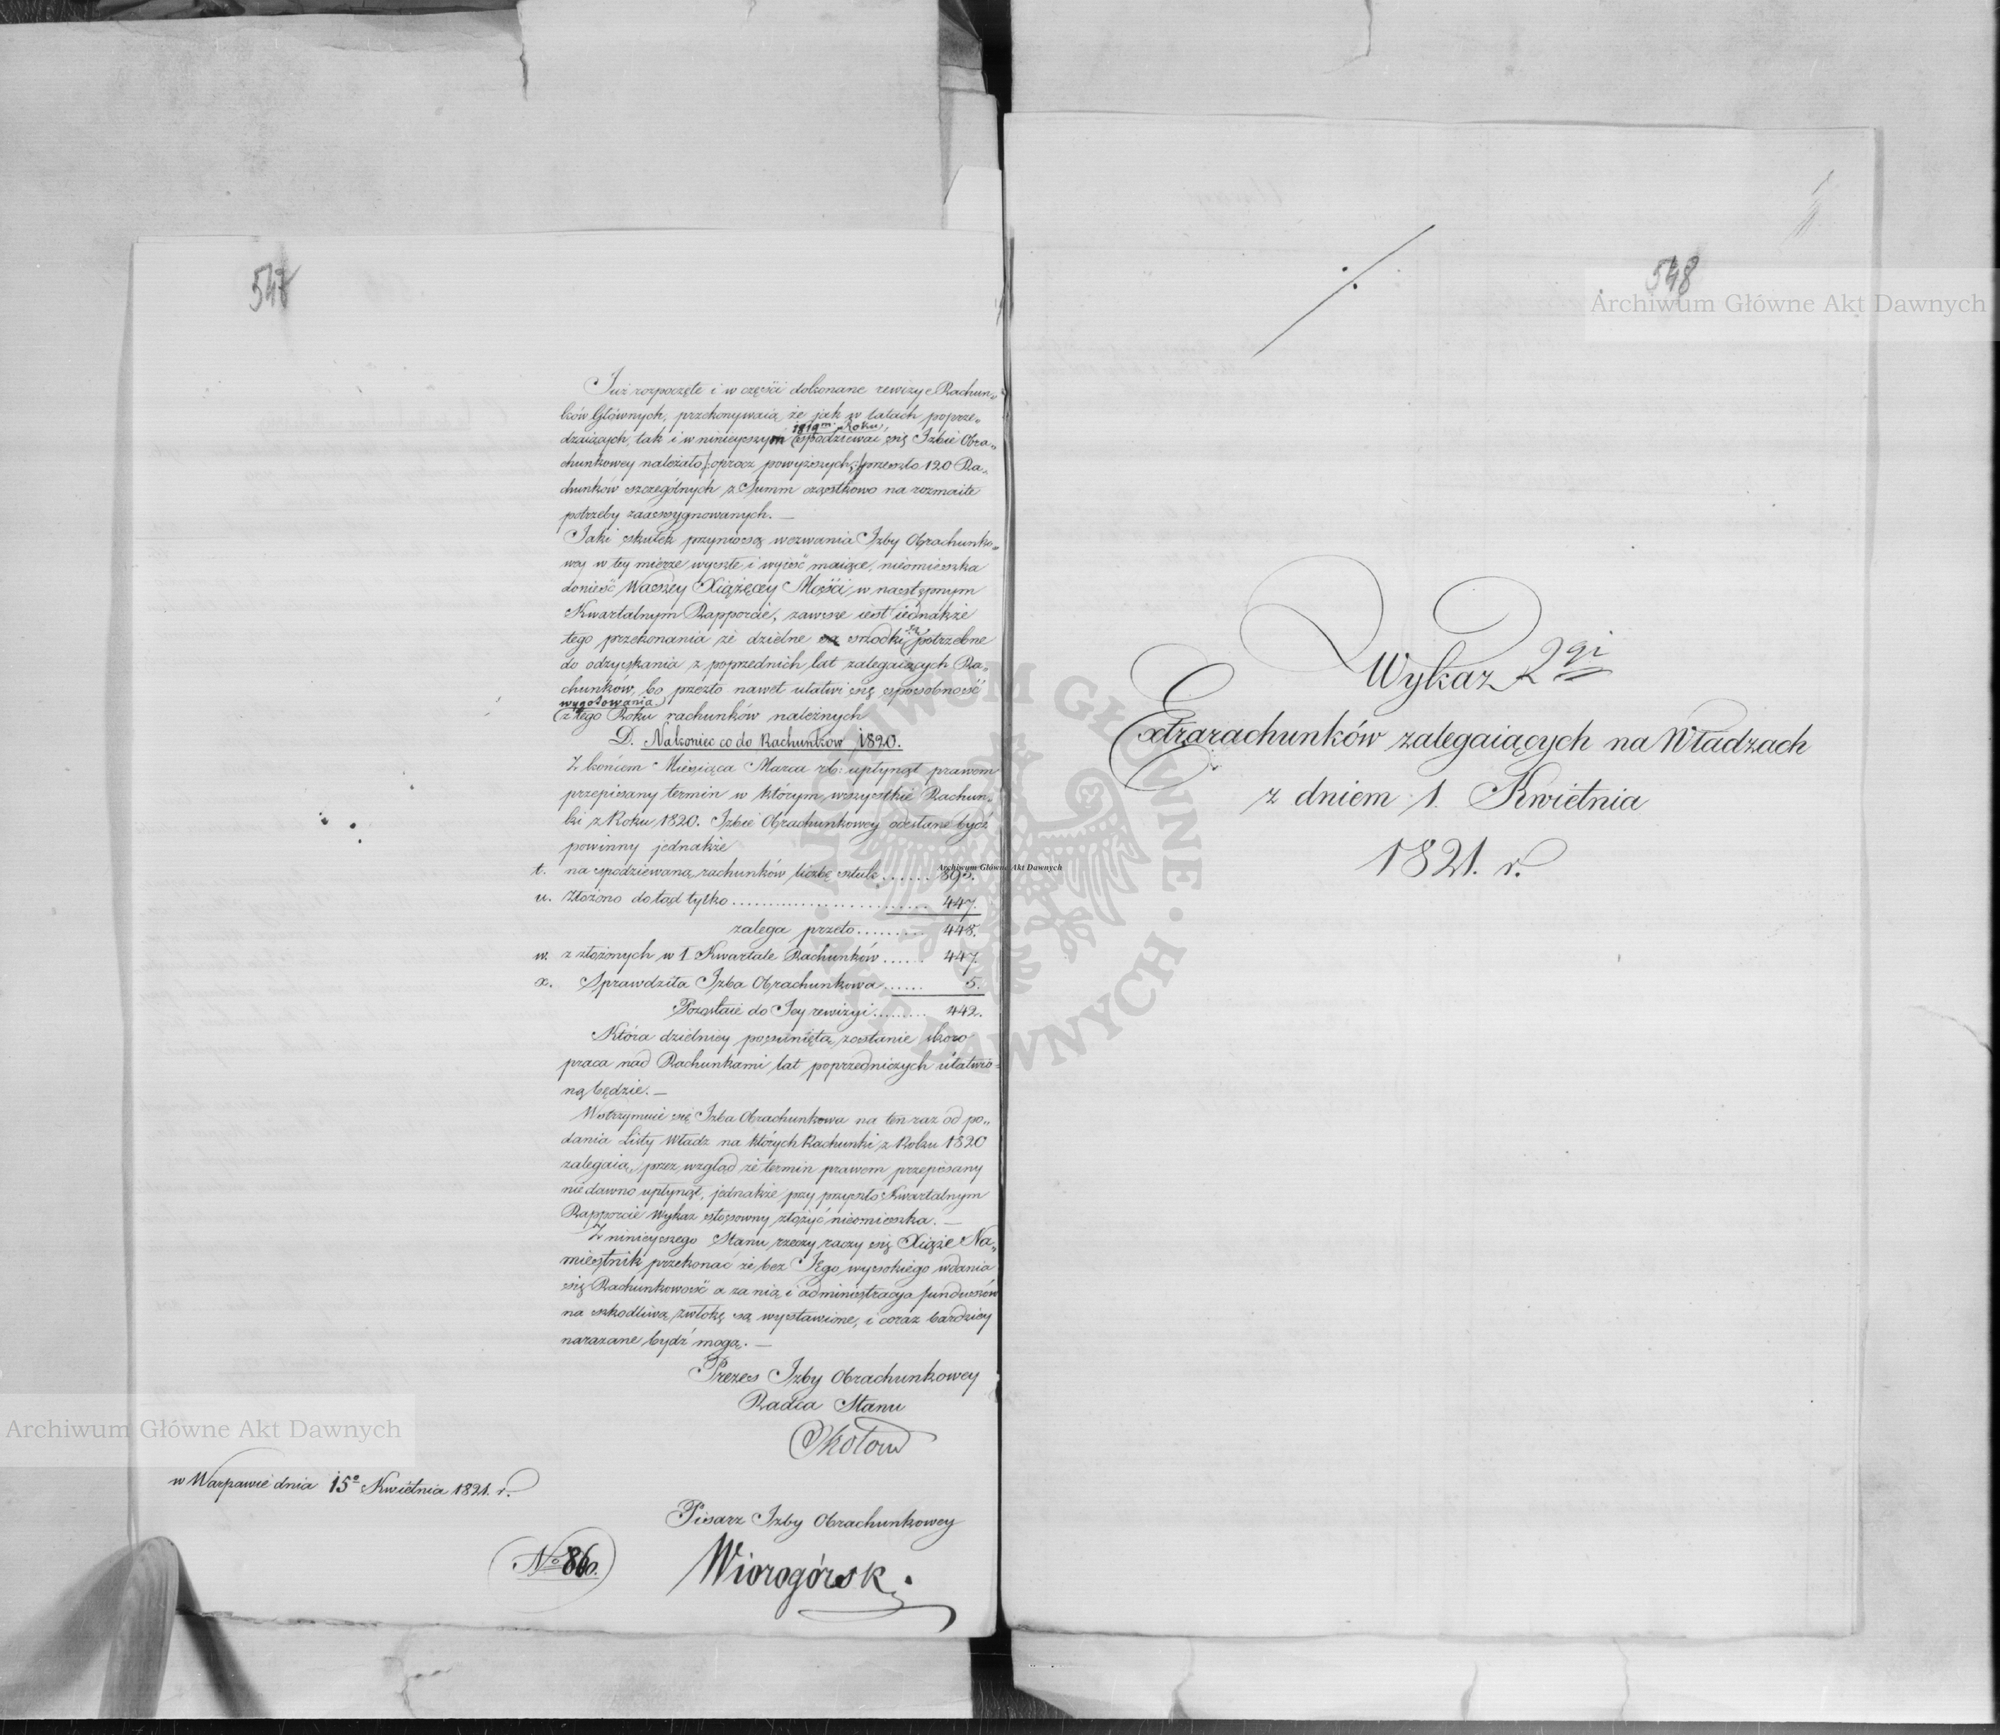 548
Już rozpoczęte i w części dokonane rewizye Rachun„
ków Głównych, przekonywaią że jak w latach poprze„
dzaiących, tak i w ninieyszym 1819m Roku, spodziewać się Izbie Obra„
chunkowey należało /:oprocz powyższych:/ przeszło 120 Ra„
chunków szczególnych z Summ cząstkowo na rozmaite
potrzeby zaassygnowanych. —
Jaki skutek przyniosą wezwania Izby Obrachunko„
wey w tey mierze wyszłe i wyiść maiące, nieomieszka
donieść Waszey Xiążęcey Mości w następnym
Kwartalnym Rapporcie, zawsze iest iednakże
tego przekonania że dzielne środki są potrzebne
do odzyskania z poprzednich lat zalegaiących Ra„
chunków, bo przezto nawet ułatwi się sposobność
wygotowania
z tego Roku rachunków należnych
D. Nakoniec co do Rachunków 1820.
Z końcem Miesiąca Marca rb: upłynął prawem
przepisany termin w którym wszystkie Rachun„
ki z Roku 1820. Izbie Obrachunkowey odesłane bydź
powinny jednakże
t. na spodziewaną rachunków liczbę sztuk ...... 895.
u. Złożono dotąd tylko ........................ 447.
zalega przeto ......... 448.
w. z złożonych w I. Kwartale Rachunków ...... 447.
x. Sprawdziła Izba Obrachunkowa ...... 5.
Pozostaie do Iey rewizyi ......... 442.
Która dzielniey posunięta zostanie skoro
praca nad Rachunkami lat poprzedniczych ułatwio„
ną będzie. —
Wstrzymuie się Izba Obrachunkowa na ten raz od po„
dania Listy Władz na których Rachunki z Roku 1820
zalegaią, przez wzgląd że termin prawem przepisany
niedawno upłynął, jednakże przy przyszło Kwartalnym
Rapporcie Wykaz stosowny złożyć nieomieszka. —
Z ninieyszego Stanu rzeczy raczy się Xiąże Na„
miestnik przekonać że bez Jego wysokiego wdania
się Rachunkowość a za nią i administracya funduszów
na szkodliwą zwłokę są wystawione, i coraz bardziey
narażane bydź mogą. —
Prezes Izby Obrachunkowey
Radca Stanu
w Warszawie dnia 15o Kwietnia 1821. r.
Pisarz Izby Obrachunkowey
Wiorogórski
No 860.
548
Wykaz 2gi
Extrarachunków zalegaiących na Władzach
z dniem 1. Kwietnia
1821. r.
Archiwum Główne Akt Dawnych
Archiwum Główne Akt Dawnych
Archiwum Główne Akt Dawnych
ARCHIWUM GŁÓWNE AKT DAWNYCH